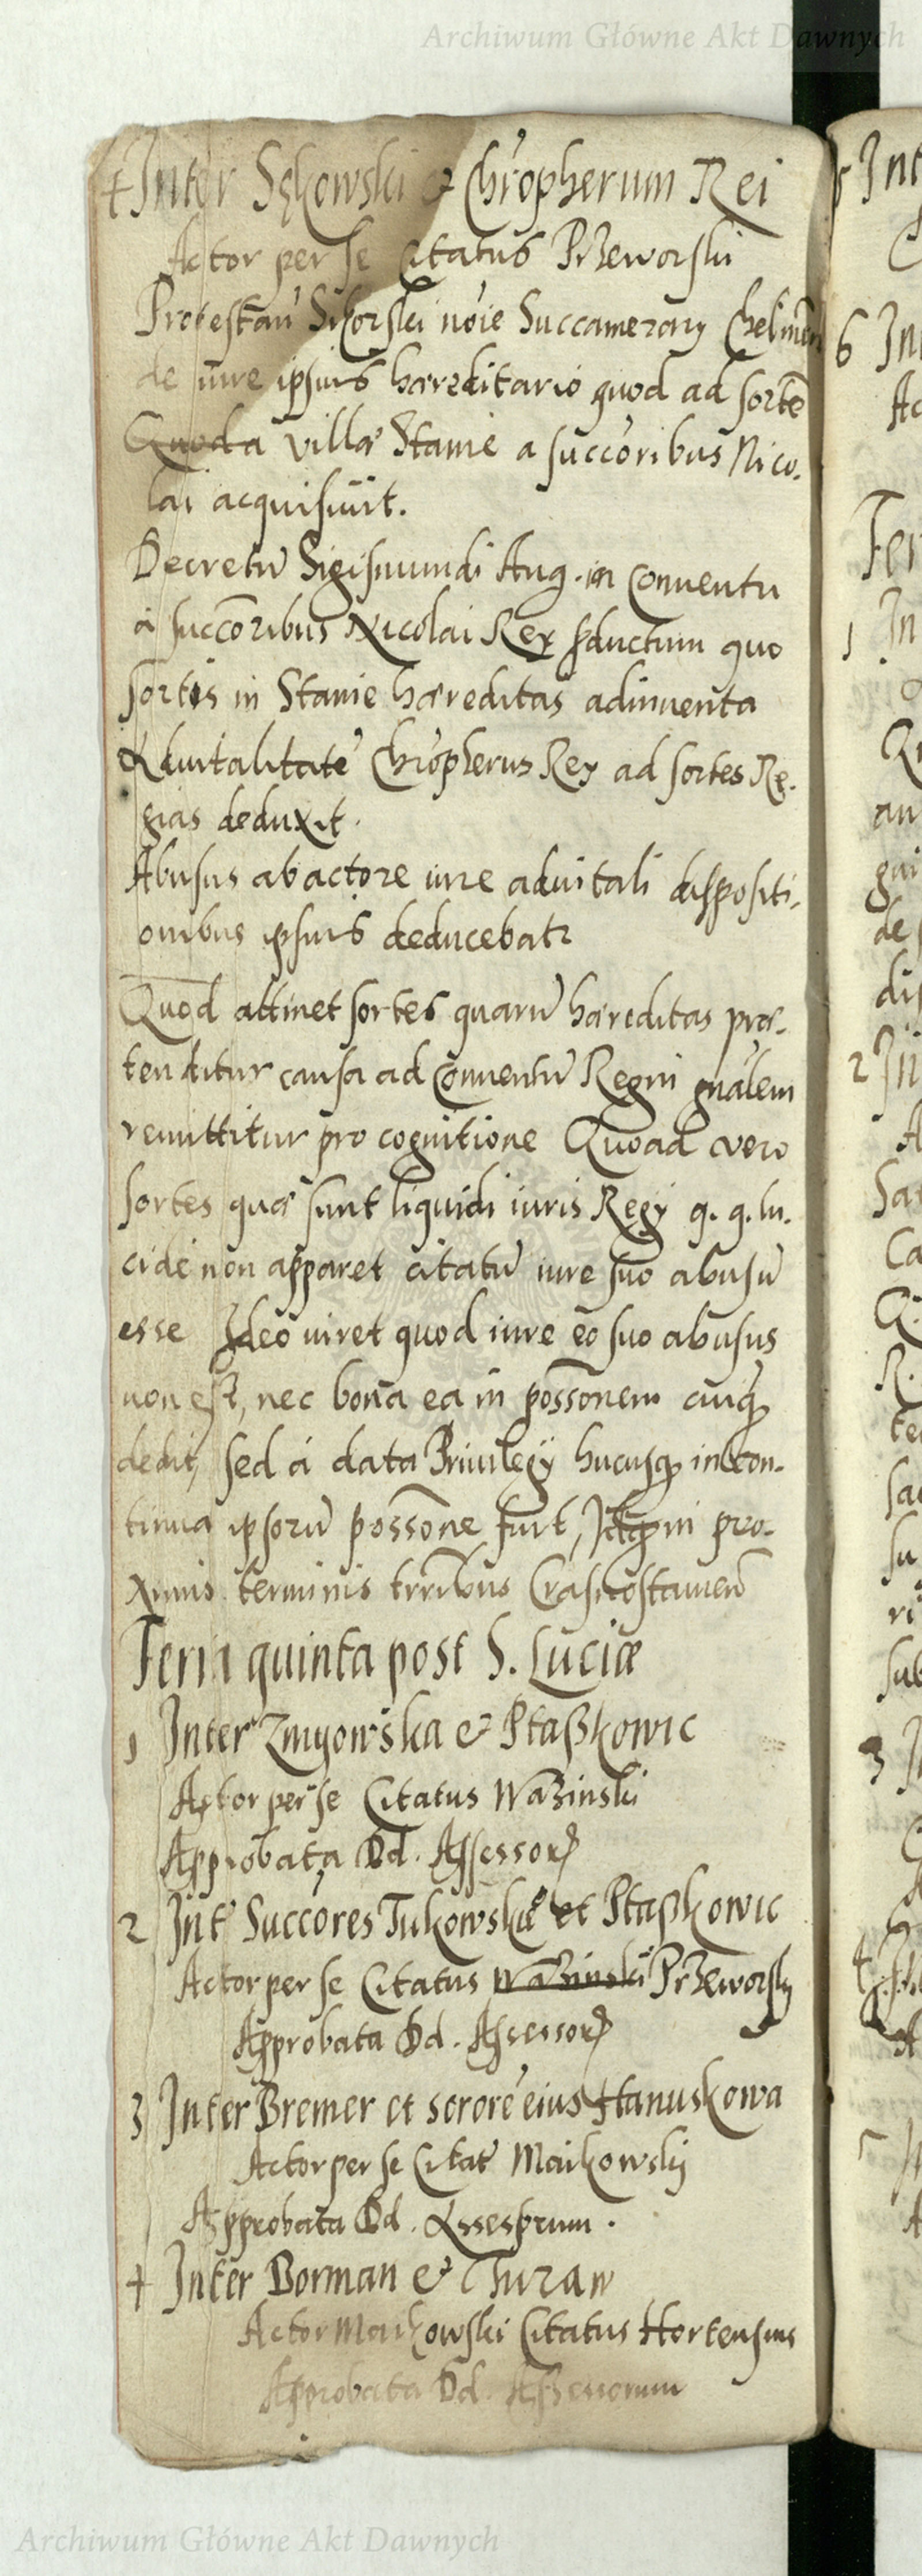 Archiwum Główne Akt Dawnych
4 Inter Sękowski & Chr̃opherum Rei
Actor per se Citatus Przeworski
Protestat̃ Sikorski nōie Succamerarij Chelmen̄
de iure ipsius hæreditario quod ad sortē
Quoda villæ Stanie a succōribus Nico-
lai acquisiuit.
Decretū Sigismundi Aug. in Conuentu
a succōribus Nicolai Rey ꝓductum quo
sortis in Stanie hæreditas adinuenta
Aduitalitatē Chrōpherus Rey ad sortes Re-
gias deduxit.
Abusus ab actore iure aduitali dispositi-
onibus ipsius deducebatr
Quod attinet sortes quarū hæreditas præ-
tenditur causa ad Conuentū Regni gnālem
remittitur pro cognitione Quoad vero
sortes quæ sunt liquidi iuris Regij q. q. lu-
cide non apparet citatū iure suo abusū
esse Ideo iuret quod iure eo suo abusus
non est, nec bona ea in possōnem cuiqꝫ
dedit, sed a data Priuilegij hucusqꝫ in con-
tinua ipsorū possōne fuit, Idqꝫ in pro-
ximis terminis trrībus Crasnostauien̄
Feria quinta post S. Luciæ
1 Inter Zmyowska & Ptaßkowic
Actor per se Citatus Wazinski
Approbata Dd. Assessorꝝ
2 Int̃ Succōres Tukowskiæ et Ptaßkowic
Actor per se Citatus Wazinski Przeworsky
Approbata Dd. Assessorꝝ
3 Inter Bremer et sororē eius Hanuskowa
Actor per se Citat̃ Maikowskij
Approbata Dd. Assessorum.
4 Inter Borman & Thuraw
Actor Maikowski Citatus Hortensius
Approbata Dd. Assessorum
Archiwum Główne Akt Dawnych